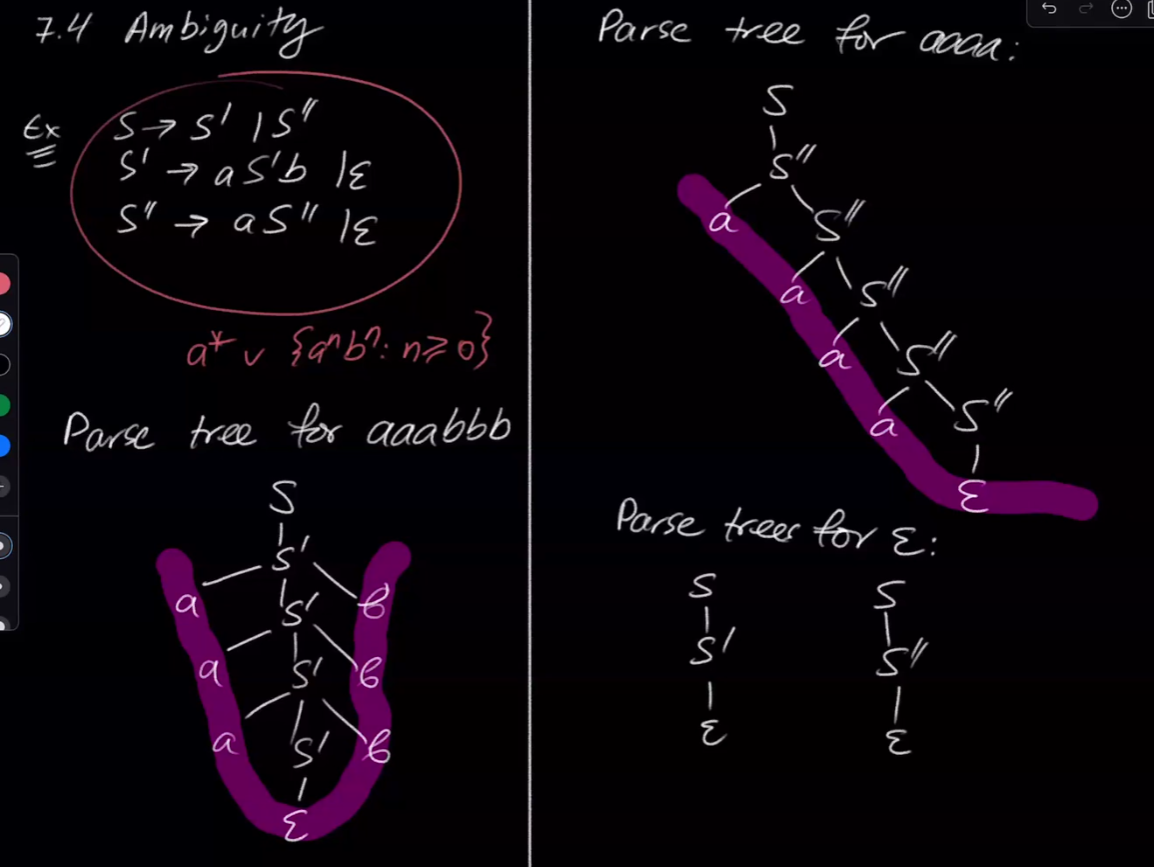 7.4 Ambiguity
Ex
S → S' | S''
S' → aS'b | ε
S'' → aS'' | ε
a* ∪ {aⁿbⁿ: n ≥ 0}
Parse tree for aaabbb
S
S'
a S' b
a S' b
a S' b
ε
Parse tree for aaaa:
S
S''
a S''
a S''
a S''
a S''
ε
Parse trees for ε:
S S
S' S''
ε ε